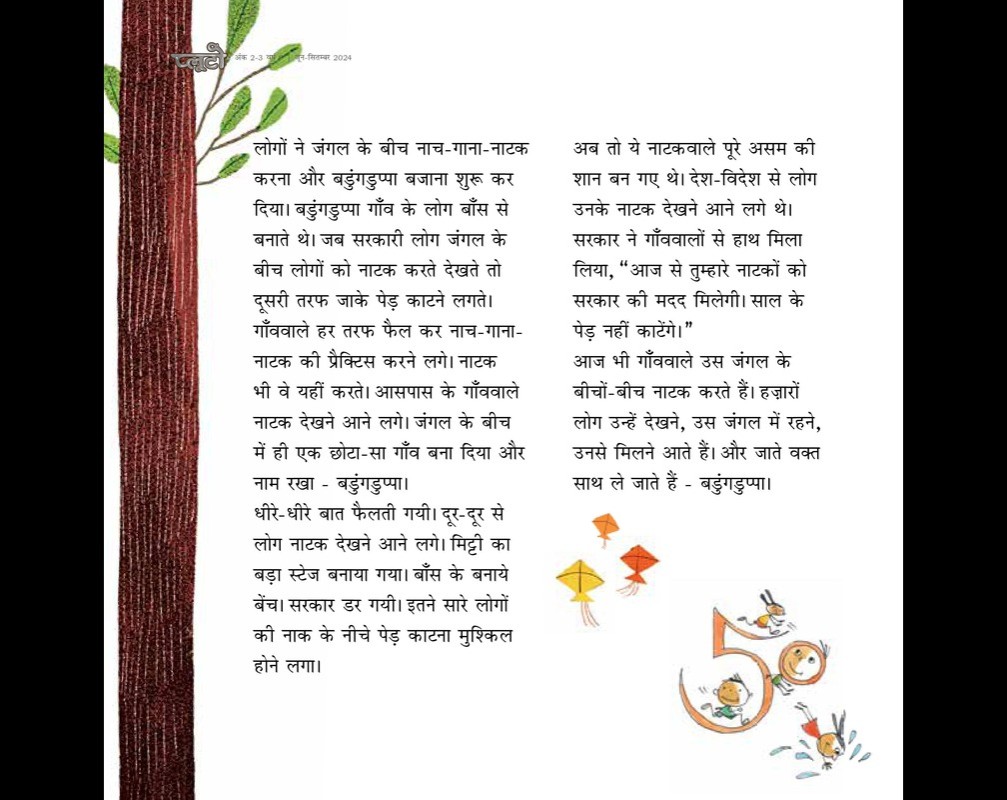 प्लूटो
अंक 2-3 जून-सितम्बर 2024
लोगों ने जंगल के बीच नाच-गाना-नाटक
करना और बडुंगडुप्पा बजाना शुरू कर
दिया। बडुंगडुप्पा गाँव के लोग बाँस से
बनाते थे। जब सरकारी लोग जंगल के
बीच लोगों को नाटक करते देखते तो
दूसरी तरफ जाके पेड़ काटने लगते।
गाँववाले हर तरफ फैल कर नाच-गाना-
नाटक की प्रैक्टिस करने लगे। नाटक
भी वे यहीं करते। आसपास के गाँववाले
नाटक देखने आने लगे। जंगल के बीच
में ही एक छोटा-सा गाँव बना दिया और
नाम रखा - बडुंगडुप्पा।
धीरे-धीरे बात फैलती गयी। दूर-दूर से
लोग नाटक देखने आने लगे। मिट्टी का
बड़ा स्टेज बनाया गया। बाँस के बनाये
बेंच। सरकार डर गयी। इतने सारे लोगों
की नाक के नीचे पेड़ काटना मुश्किल
होने लगा।
अब तो ये नाटकवाले पूरे असम की
शान बन गए थे। देश-विदेश से लोग
उनके नाटक देखने आने लगे थे।
सरकार ने गाँववालों से हाथ मिला
लिया, “आज से तुम्हारे नाटकों को
सरकार की मदद मिलेगी। साल के
पेड़ नहीं काटेंगे।”
आज भी गाँववाले उस जंगल के
बीचों-बीच नाटक करते हैं। हज़ारों
लोग उन्हें देखने, उस जंगल में रहने,
उनसे मिलने आते हैं। और जाते वक्त
साथ ले जाते हैं - बडुंगडुप्पा।
50